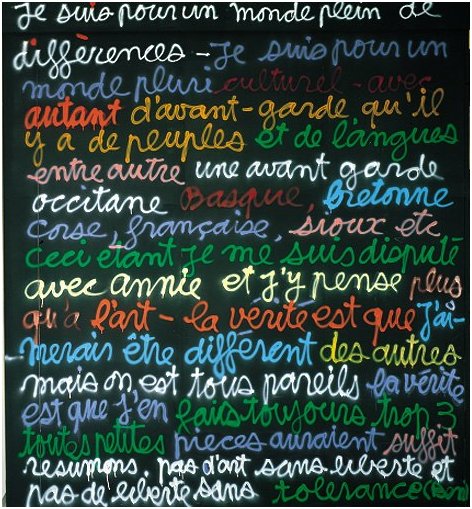 je suis pour un monde plein de
différences - je suis pour un
monde pluri culturel - avec
autant d'avant-garde qu'il
y a de peuples et de langues
entre autre une avant garde
occitane Basque, bretonne
corse, française, sioux etc
ceci étant je me suis disputé
avec annie et j'y pense plus
qu'a l'art - la vérité est que j'ai-
merais être différent des autres
mais on est tous pareils la vérité
est que j'en fais toujours trop 3
toutes petites pieces auraient suffit
resumons, pas d'art sans liberte et
pas de liberte sans tolerance